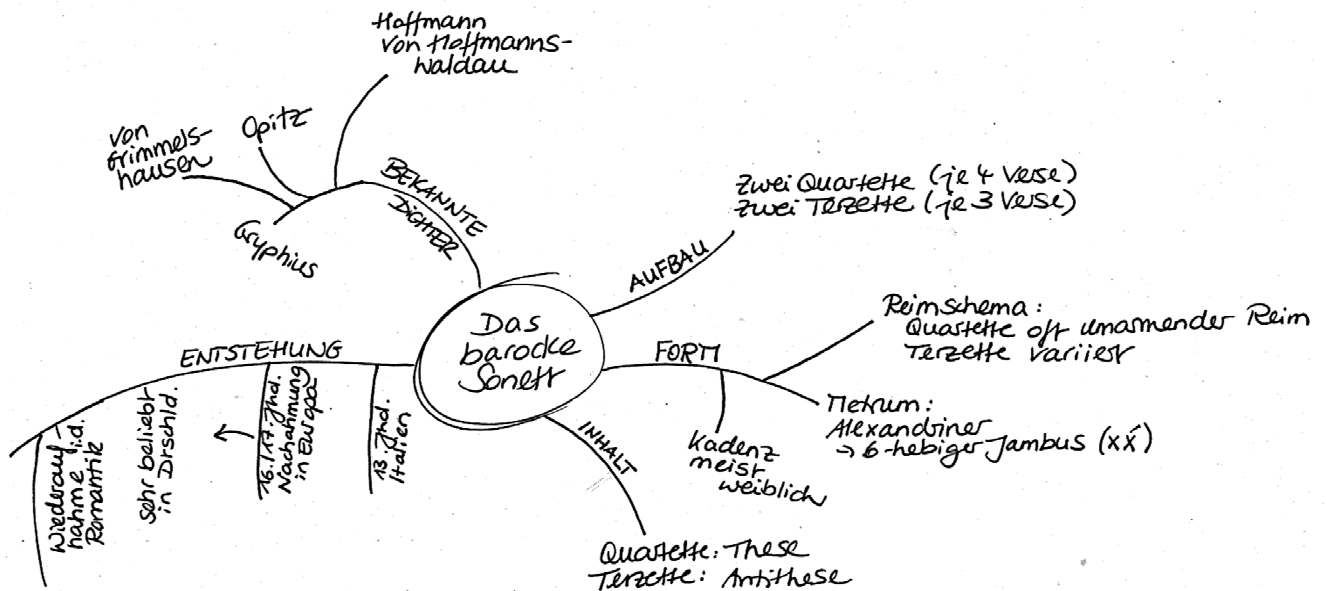 Das
barocke
Sonett
BEKANNTE
DICHTER
Hoffmann
von Hoffmanns-
waldau
Opitz
von
Grimmels-
hausen
Gryphius
AUFBAU
Zwei Quartette (je 4 Verse)
Zwei Terzette (je 3 Verse)
FORM
Reimschema:
Quartette oft umarmender Reim
Terzette variiert
Metrum:
Alexandriner
→ 6-hebiger Jambus (xx́)
Kadenz
meist
weiblich
INHALT
Quartette: These
Terzette: Antithese
ENTSTEHUNG
13. Jhd.
Italien
16./17. Jhd.
Nachahmung
in Europa
Sehr beliebt
in Dtschld.
Wiederauf-
nahme i.d.
Romantik